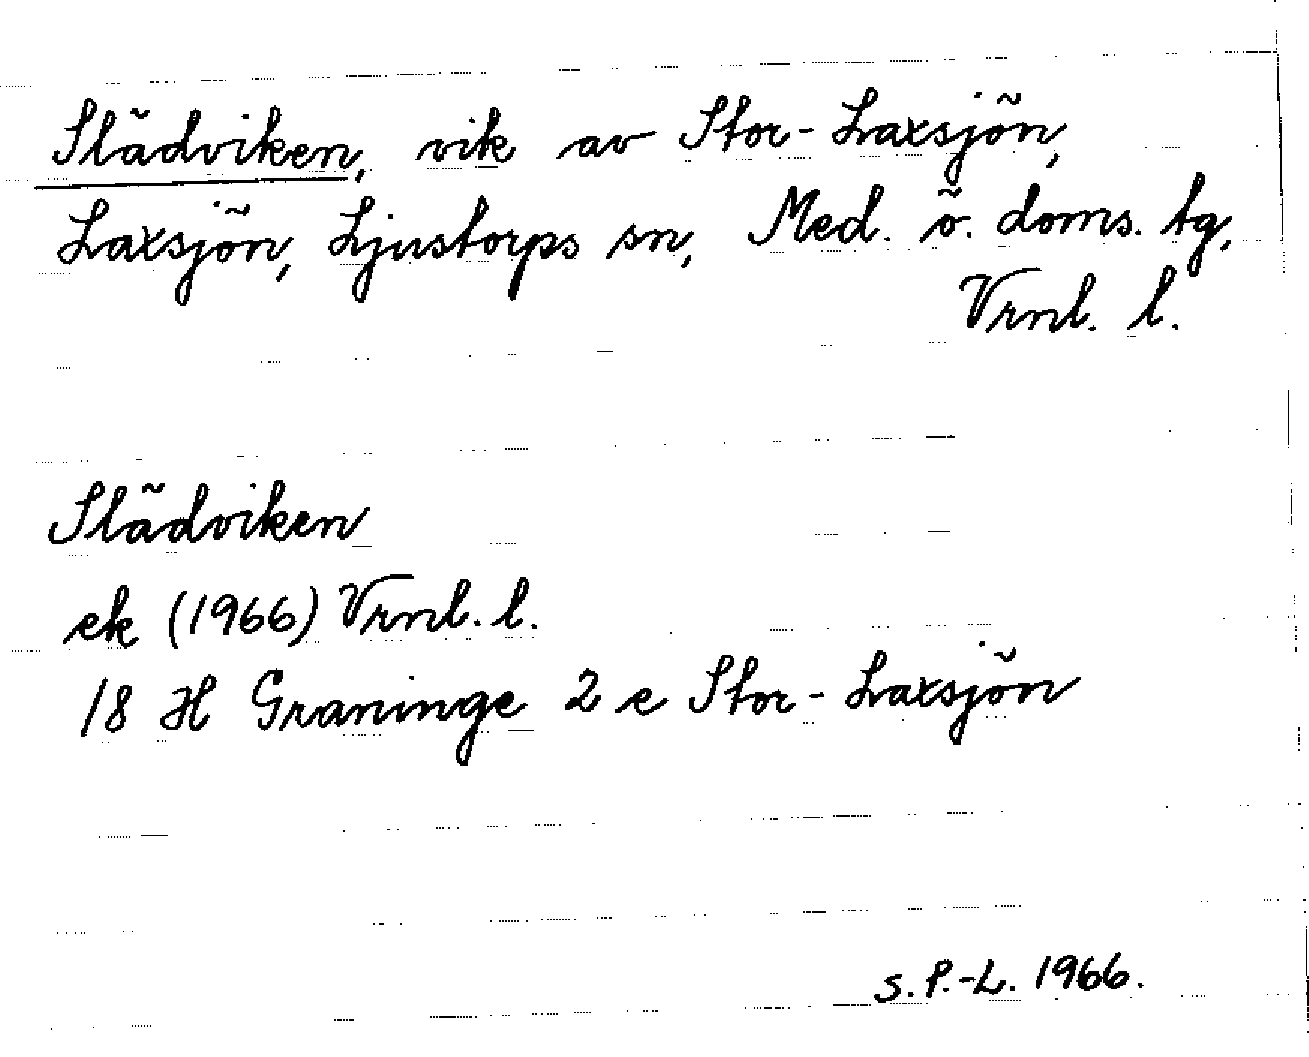 Slädviken, vik av Stor-Laxsjön,
Laxsjön, Ljustorps sn, Med. ö. doms. tg,
Vrnl. l.
Slädviken
ek (1966) Vrnl. l.
18 H Graninge 2 e Stor-Laxsjön
S. P.-L. 1966.